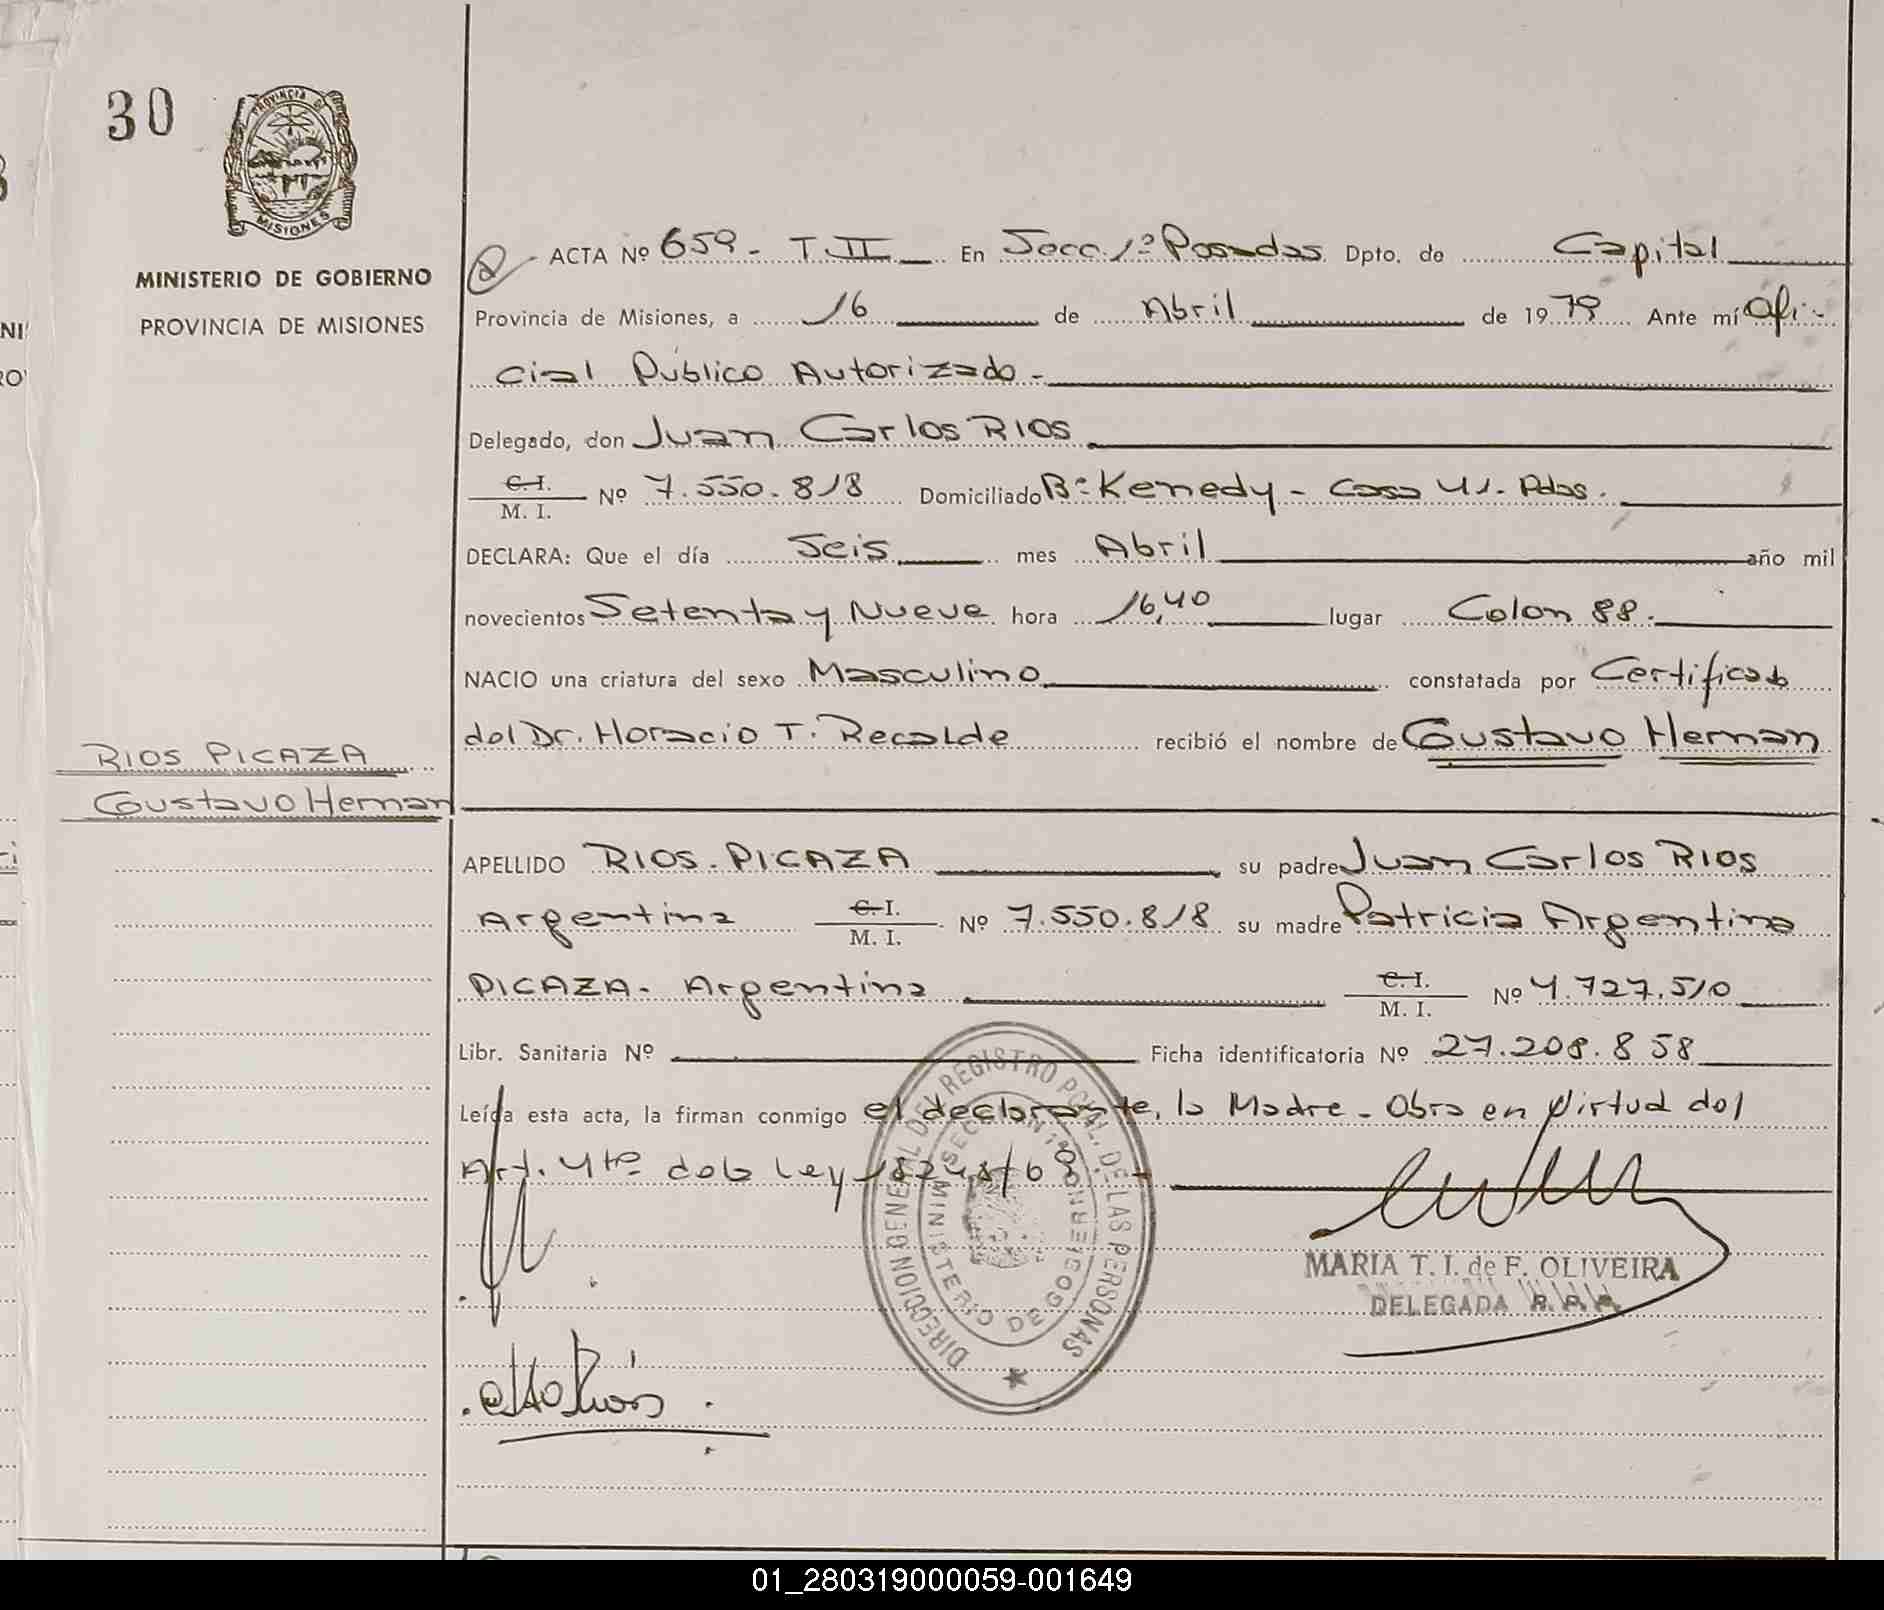 30
PROVINCIA DE
MISIONES
MINISTERIO DE GOBIERNO
PROVINCIA DE MISIONES
ACTA Nº 659 - T. II En Secc. 1ª Posadas Dpto. de Capital
Provincia de Misiones, a 16 de Abril de 1979 Ante mí Ofi-
cial Público Autorizado -
Delegado, don Juan Carlos RIOS
C. I.
M. I. Nº 7.550.818 Domiciliado Bº Kenedy - Casa 41. Pdas.
DECLARA: Que el día Seis mes Abril año mil
novecientos Setenta y Nueve hora 16,40 lugar Colon 88.
NACIO una criatura del sexo Masculino constatada por Certificado
del Dr. Horacio T. Recalde recibió el nombre de Gustavo Hernan
RIOS PICAZA
Gustavo Hernan
APELLIDO RIOS. PICAZA su padre Juan Carlos RIOS
Argentina C. I.
M. I. Nº 7.550.818 su madre Patricia Argentina
PICAZA. Argentina C. I.
M. I. Nº 4.727.510
Libr. Sanitaria Nº Ficha identificatoria Nº 27.208.858
Leída esta acta, la firman conmigo el declarante, la Madre - Obra en Virtud del
Art. 4to de la Ley 18248/69
DIRECCION GENERAL DEL REGISTRO PCIAL. DE LAS PERSONAS
SECCION 1ª
MINISTERIO DE GOBIERNO
MARIA T. I. de F. OLIVEIRA
DELEGADA R. P. P.
01_280319000059-001649